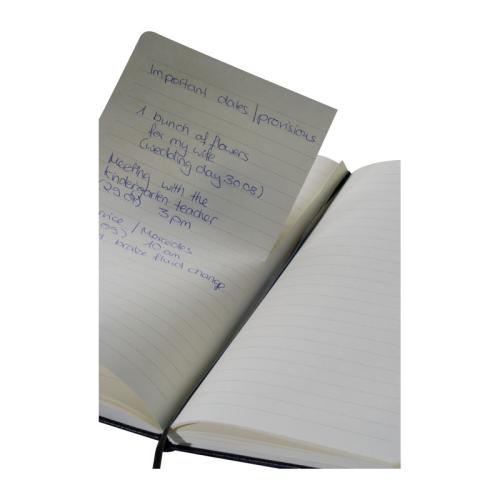 Important dates/provisions
1 bunch of flowers
for my wife
(wedding day 30.08)
Meeting with the
kindergarten teacher
3 pm
/ Mercedes
10 am
brake fluid change